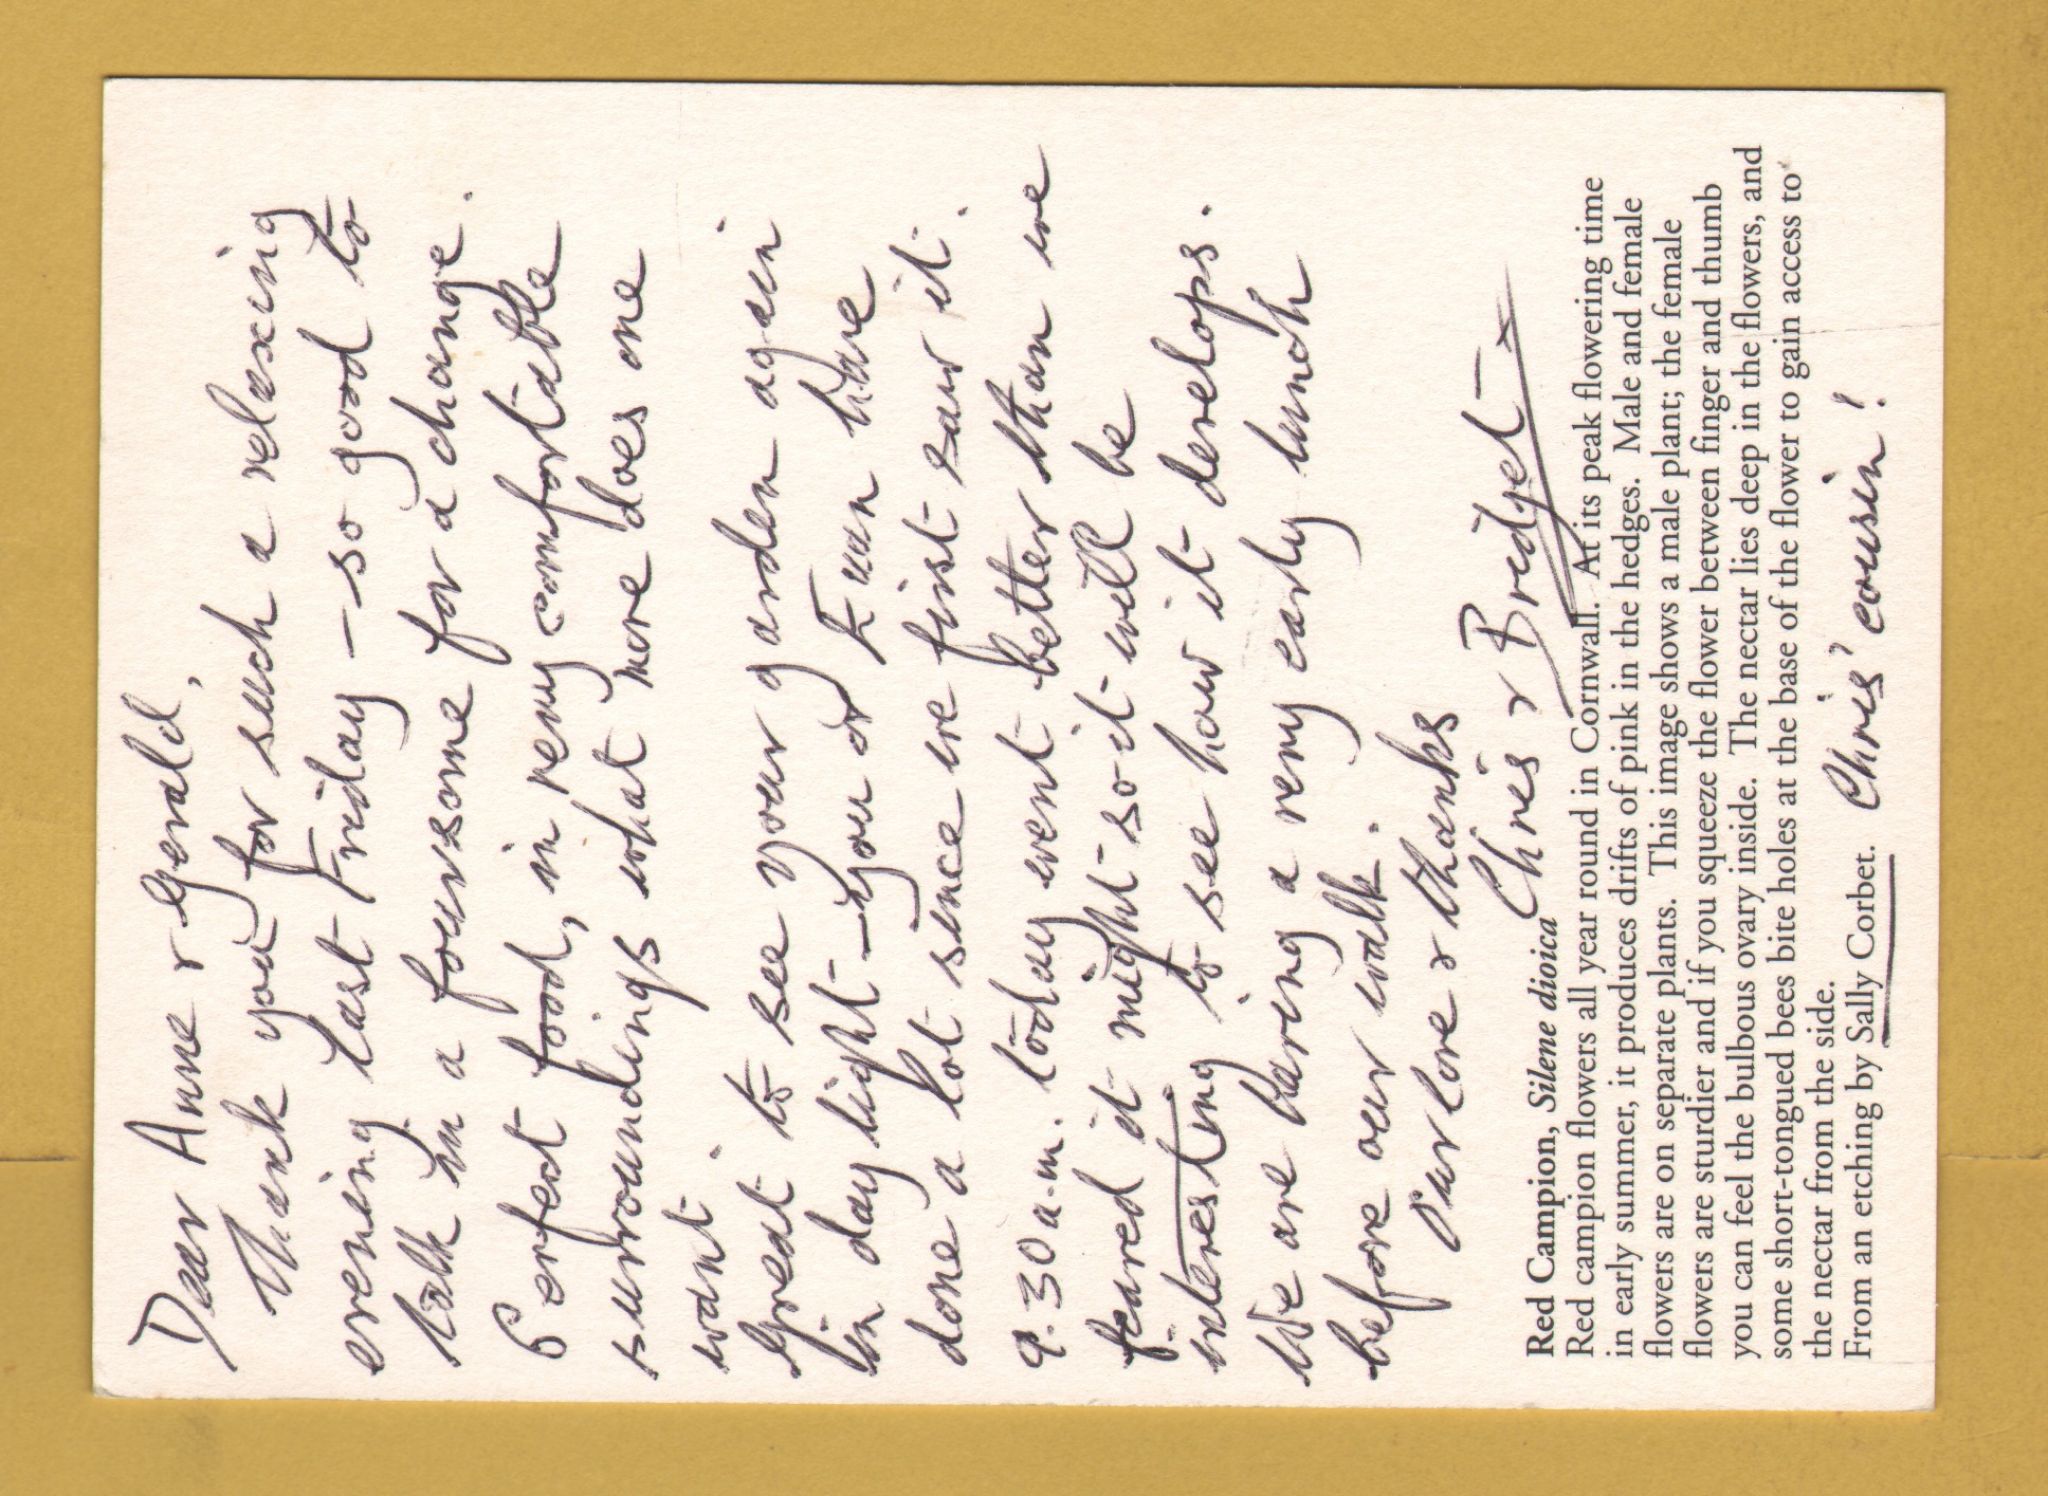 Dear Anne & Gerald,
Thank you for such a relaxing
evening last Friday – so good to
talk in a foursome for a change.
Perfect food, in very comfortable
surroundings what more does one
want.
Great to see your garden again
in daylight – you or Euan have
done a lot since we first saw it.
9.30 a.m. today went better than we
feared it might so it will be
interesting to see how it develops.
We are having a very early lunch
before our walk.
Our love & thanks
Chris & Bridget x
Red Campion, Silene dioica
Red campion flowers all year round in Cornwall. At its peak flowering time
in early summer, it produces drifts of pink in the hedges. Male and female
flowers are on separate plants. This image shows a male plant; the female
flowers are sturdier and if you squeeze the flower between finger and thumb
you can feel the bulbous ovary inside. The nectar lies deep in the flowers, and
some short-tongued bees bite holes at the base of the flower to gain access to
the nectar from the side.
From an etching by Sally Corbet. Chris' cousin!